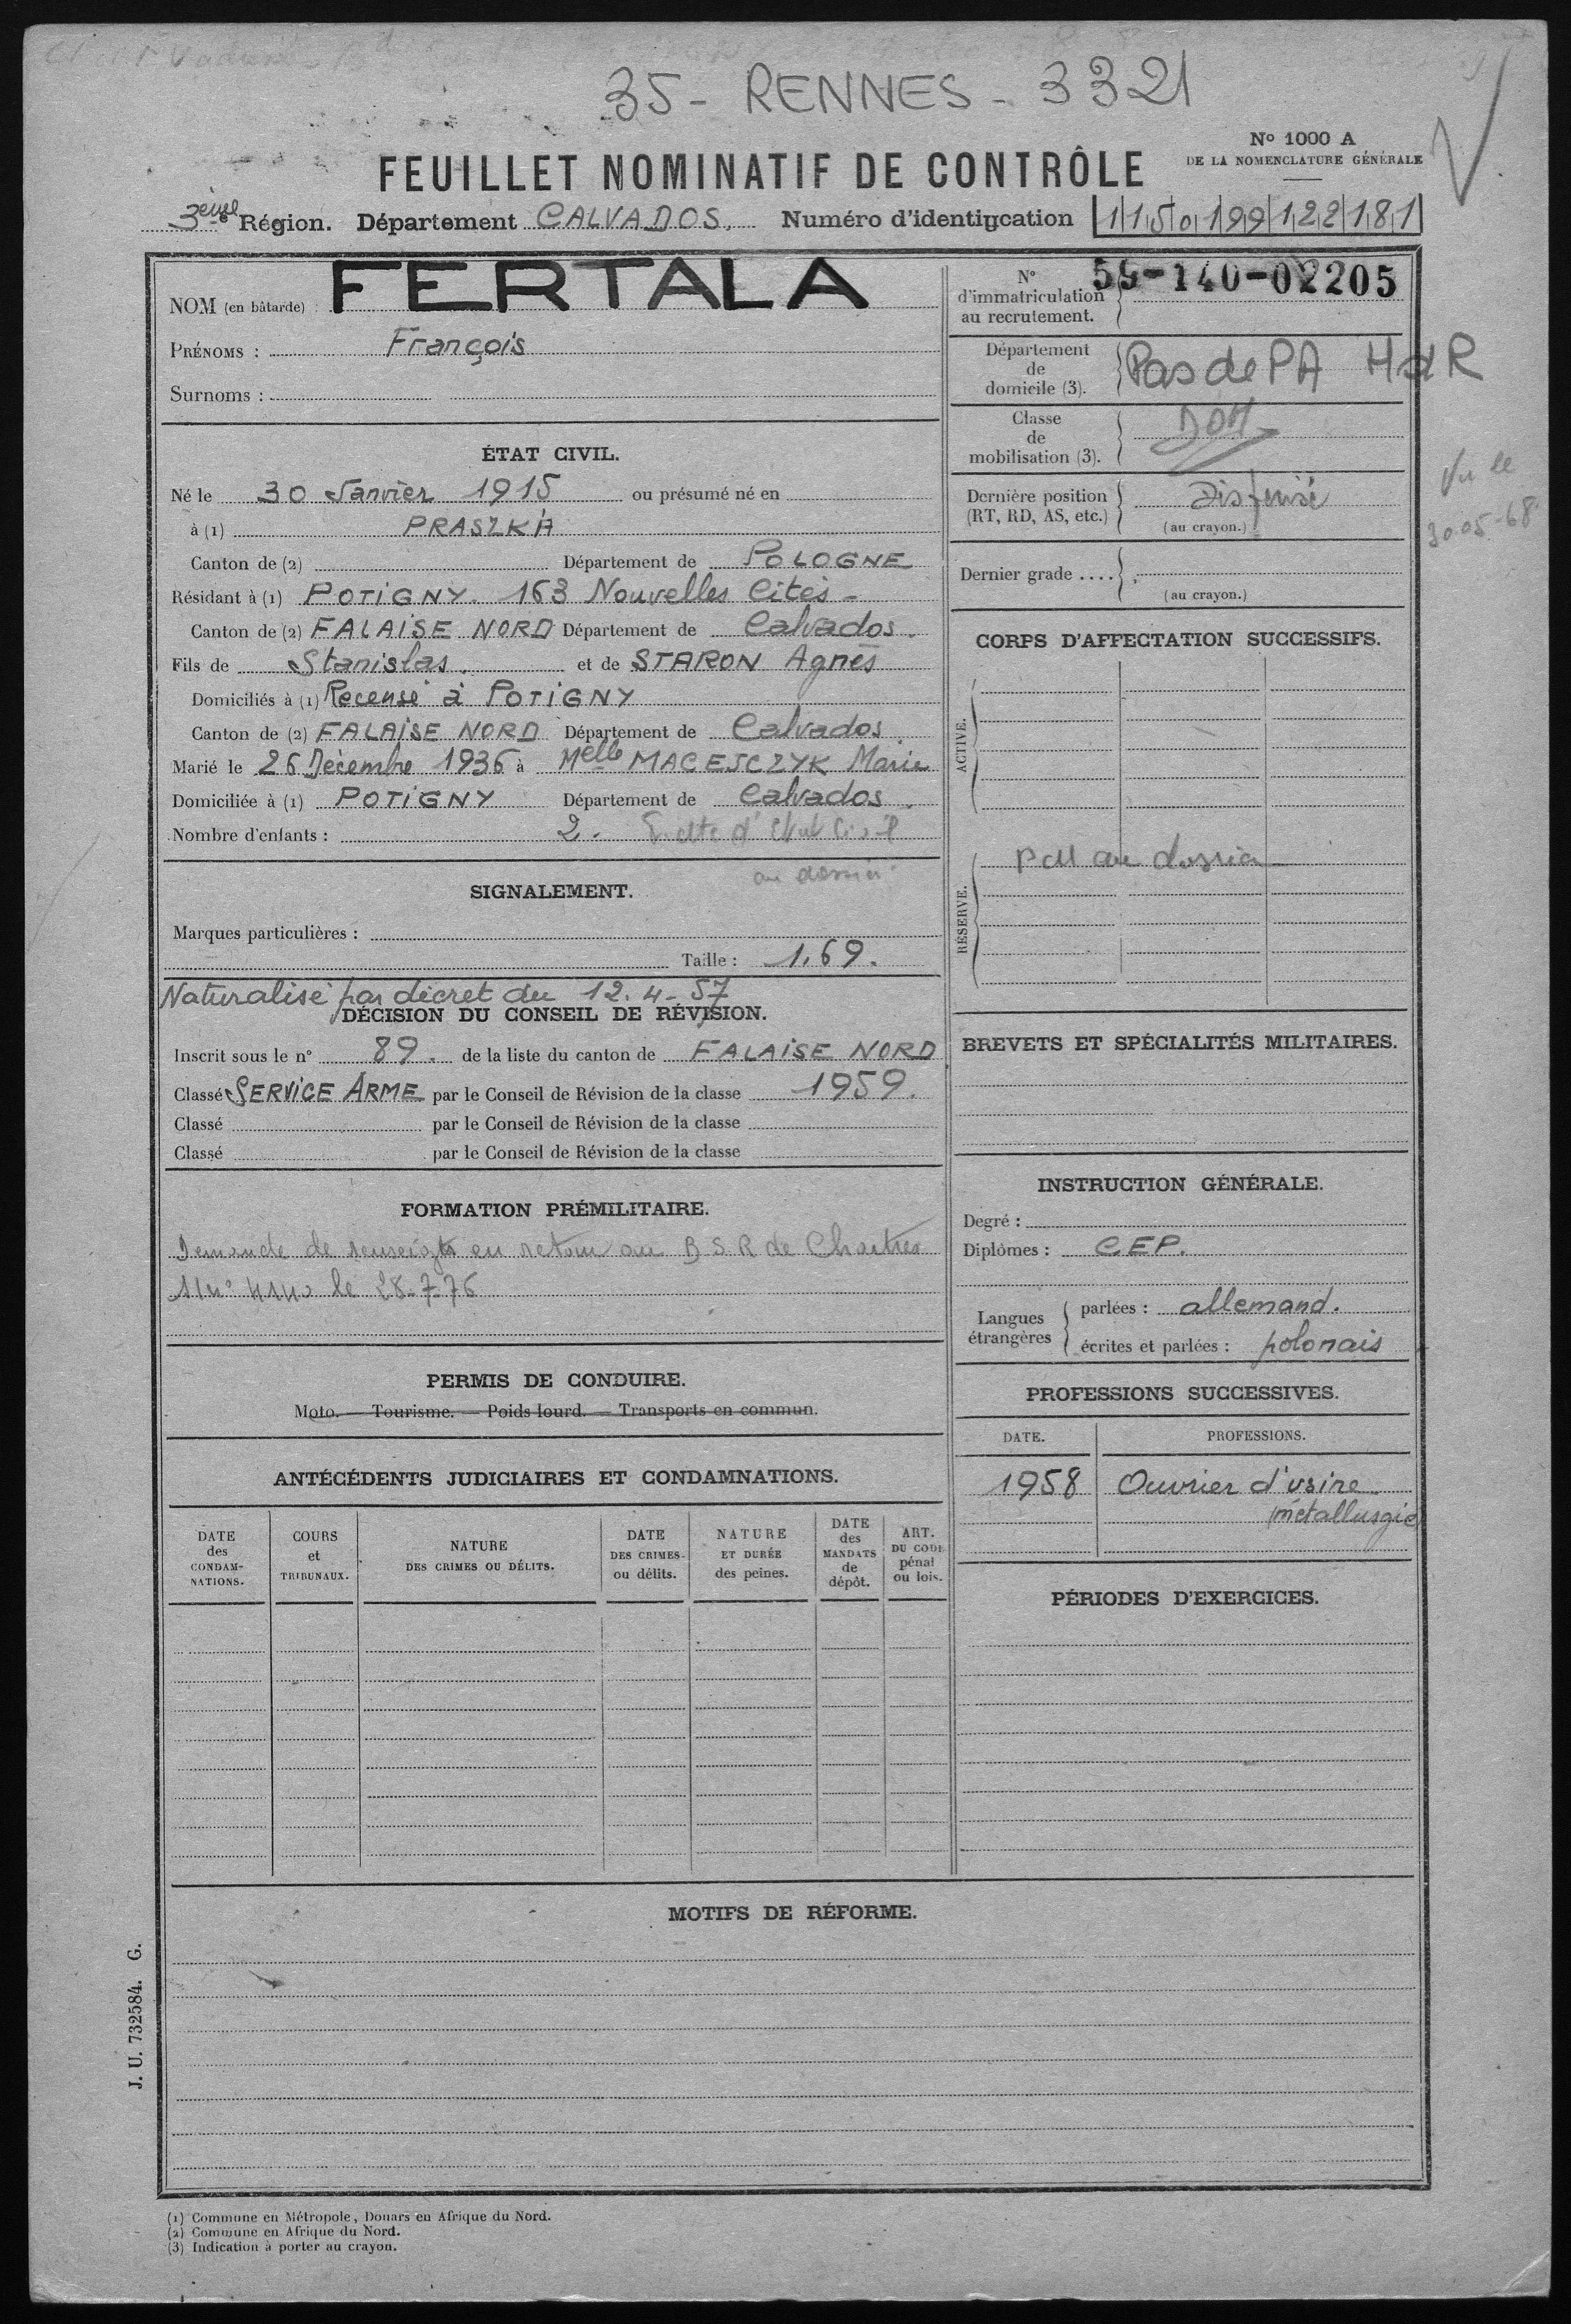 35 - RENNES - 3321
N° 1000 A
DE LA NOMENCLATURE GÉNÉRALE
FEUILLET NOMINATIF DE CONTRÔLE
3ème Région. Département CALVADOS. Numéro d'identification 1 15 01 99 122 181
NOM (en bâtarde) : FERTALA
PRÉNOMS : François
Surnoms :
ÉTAT CIVIL.
Né le 30 Janvier 1915 ou présumé né en
à (1) PRASZKA
Canton de (2) Département de POLOGNE
Résidant à (1) POTIGNY. 163 Nouvelles Cités -
Canton de (2) FALAISE NORD Département de Calvados.
Fils de Stanislas. et de STARON Agnès
Domiciliés à (1) Recensé à POTIGNY
Canton de (2) FALAISE NORD Département de Calvados
Marié le 26 Décembre 1936 à Melle MACEJCZYK Marie
Domiciliée à (1) POTIGNY Département de Calvados.
Nombre d'enfants : 2. d'Etat Civil
au dossier
SIGNALEMENT.
Marques particulières :
Taille : 1.69.
Naturalisé par décret du 12.4-57
DÉCISION DU CONSEIL DE RÉVISION.
Inscrit sous le n° 89. de la liste du canton de FALAISE NORD
Classé SERVICE ARME par le Conseil de Révision de la classe 1959.
Classé par le Conseil de Révision de la classe
Classé par le Conseil de Révision de la classe
FORMATION PRÉMILITAIRE.
Demande de renseigts en retour au B S R de Chartres
le 28-7-76
PERMIS DE CONDUIRE.
Moto. — Tourisme. — Poids lourd. — Transports en commun.
ANTÉCÉDENTS JUDICIAIRES ET CONDAMNATIONS.
DATE des CONDAMNATIONS.
COURS et TRIBUNAUX.
NATURE DES CRIMES OU DÉLITS.
DATE DES CRIMES ou délits.
NATURE ET DURÉE des peines.
DATE des MANDATS de dépôt.
ART. DU CODE pénal ou lois.
N° d'immatriculation au recrutement. 59-140-02205
Département de domicile (3). Pas de PA HdR
Classe de mobilisation (3). DOM
Vu le
30-05-68
Dernière position (RT, RD, AS, etc.)
(au crayon.)
Dernier grade ....
(au crayon.)
CORPS D'AFFECTATION SUCCESSIFS.
ACTIVE.
RÉSERVE.
au dossier
BREVETS ET SPÉCIALITÉS MILITAIRES.
INSTRUCTION GÉNÉRALE.
Degré :
Diplômes : CEP.
Langues étrangères
parlées : allemand.
écrites et parlées : polonais
PROFESSIONS SUCCESSIVES.
DATE. PROFESSIONS.
1958 Ouvrier d'usine
(métallurgie)
PÉRIODES D'EXERCICES.
MOTIFS DE RÉFORME.
J. U. 732584. G.
(1) Commune en Métropole, Douars en Afrique du Nord.
(2) Commune en Afrique du Nord.
(3) Indication à porter au crayon.